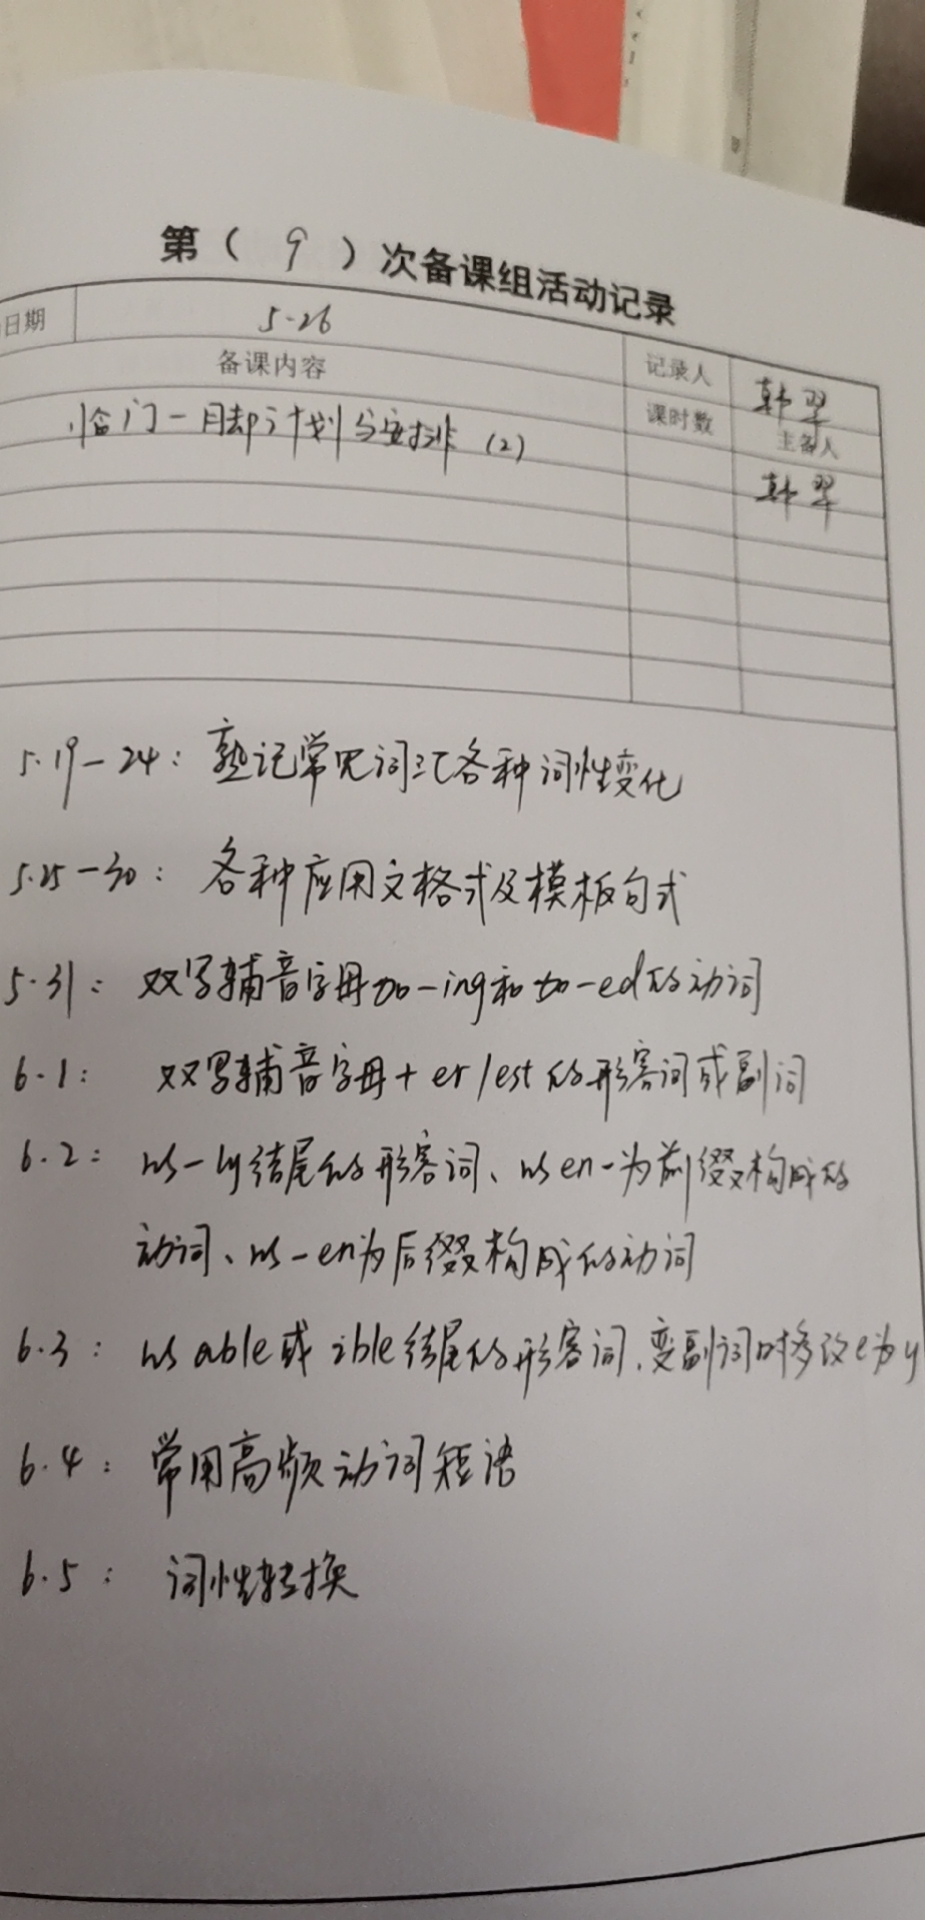 第（ 9 ）次备课组活动记录
日期 5·26 记录人 韩翠
备课内容 课时数 主备人
临门一脚计划与安排（2） 韩翠
5.19-24：熟记常见词汇各种词性变化
5.25-30：各种应用文格式及模板句式
5.31：双写辅音字母加-ing和加-ed的动词
6.1：双写辅音字母+er/est的形容词或副词
6.2：以-ly结尾的形容词、以en-为前缀构成的
动词、以-en为后缀构成的动词
6.3：以able或ible结尾的形容词，变副词时多改e为y
6.4：常用高频动词短语
6.5：词性转换